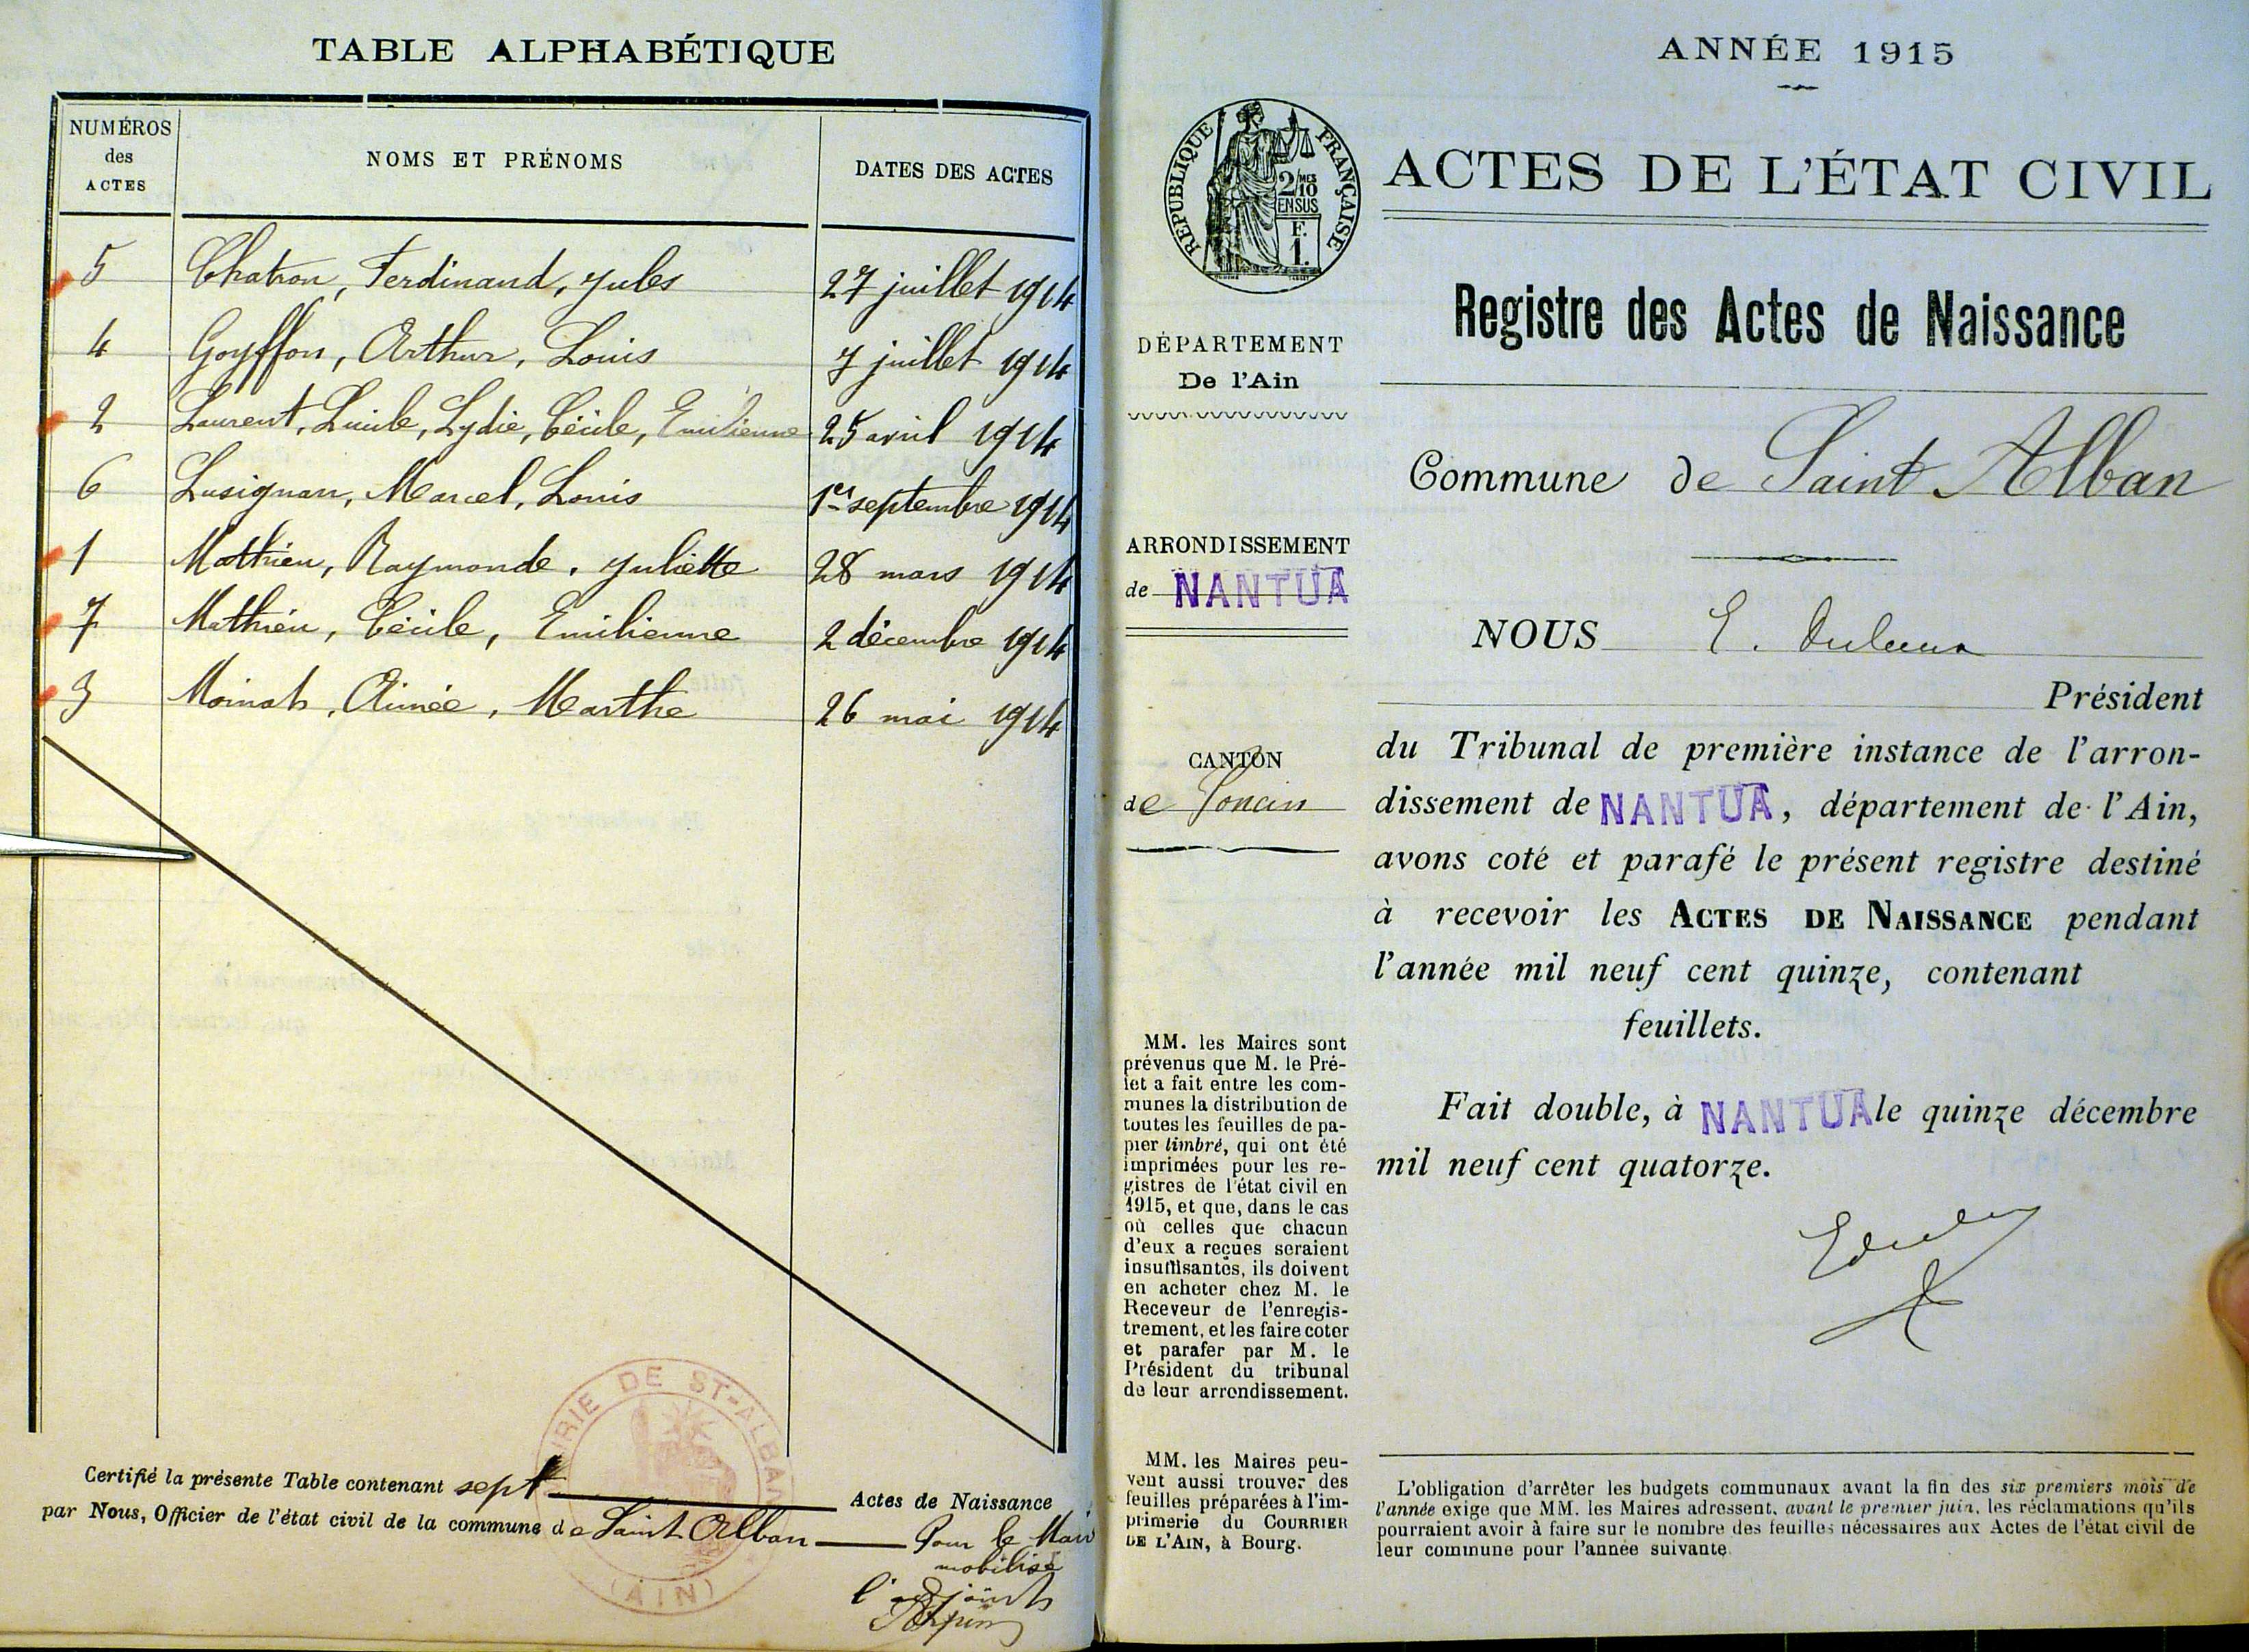 TABLE ALPHABÉTIQUE
NUMÉROS
des
ACTES
NOMS ET PRÉNOMS
DATES DES ACTES
5 Chatron, Ferdinand, Jules 27 juillet 1914
4 Goyffon, Arthur, Louis 7 juillet 1914
2 Laurent, Lucile, Lydie, Cécile, Emilienne 25 avril 1914
6 Lusignan, Marcel, Louis 1er septembre 1914
1 Mathieu, Raymonde, Juliette 28 mars 1914
7 Mathieu, Cécile, Emilienne 2 décembre 1914
3 Moinat, Aimée, Marthe 26 mai 1914
Certifié la présente Table contenant sept Actes de Naissance
par Nous, Officier de l'état civil de la commune de Saint Alban
Pour le Maire
mobilisé
l'adjoint
MAIRIE DE ST-ALBAN
(AIN)
ANNÉE 1915
RÉPUBLIQUE FRANÇAISE
2/MES
10
EN SUS
F.
1.
ACTES DE L'ÉTAT CIVIL
Registre des Actes de Naissance
DÉPARTEMENT
De l'Ain
Commune de Saint Alban
ARRONDISSEMENT
de NANTUA
CANTON
de Poncin
NOUS E.
Président
du Tribunal de première instance de l'arron-
dissement de NANTUA, département de l'Ain,
avons coté et parafé le présent registre destiné
à recevoir les ACTES DE NAISSANCE pendant
l'année mil neuf cent quinze, contenant
feuillets.
Fait double, à NANTUA le quinze décembre
mil neuf cent quatorze.
MM. les Maires sont
prévenus que M. le Pré-
fet a fait entre les com-
munes la distribution de
toutes les feuilles de pa-
pier timbré, qui ont été
imprimées pour les re-
gistres de l'état civil en
1915, et que, dans le cas
où celles que chacun
d'eux a reçues seraient
insuffisantes, ils doivent
en acheter chez M. le
Receveur de l'enregis-
trement, et les faire coter
et parafer par M. le
Président du tribunal
de leur arrondissement.
MM. les Maires peu-
vent aussi trouver des
feuilles préparées à l'im-
primerie du COURRIER
DE L'AIN, à Bourg.
L'obligation d'arrêter les budgets communaux avant la fin des six premiers mois de
l'année exige que MM. les Maires adressent, avant le premier juin, les réclamations qu'ils
pourraient avoir à faire sur le nombre des feuilles nécessaires aux Actes de l'état civil de
leur commune pour l'année suivante.